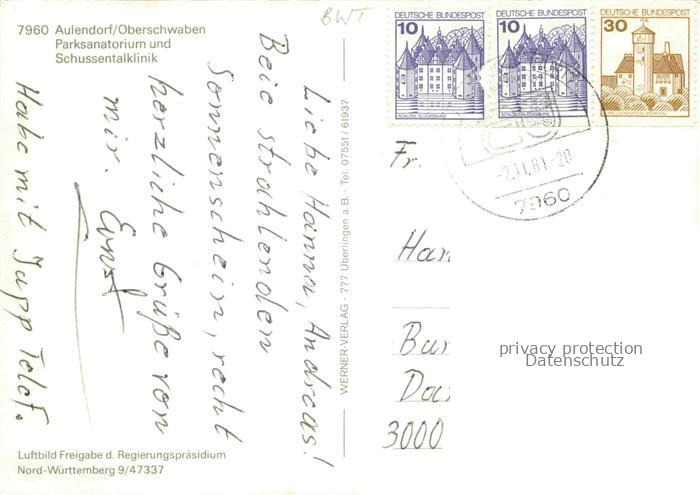 BWT
7960 Aulendorf/Oberschwaben
Parksanatorium und
Schussentalklinik
Liebe Hanna, Andreas!
Beie strahlenden
Sonnenschein, recht
herzliche Grüße von
mir. Ernst
Habe mit Jupp Telef.
Luftbild Freigabe d. Regierungspräsidium
Nord-Württemberg 9/47337
WERNER-VERLAG - 777 Überlingen a. B. - Tel. 07551 / 61937
DEUTSCHE BUNDESPOST
10
SCHLOSS GLÜCKSBURG
DEUTSCHE BUNDESPOST
10
SCHLOSS GLÜCKSBURG
DEUTSCHE BUNDESPOST
30
-2.11.81-20
7960
Fr.
Han
Bur
Das
3000
privacy protection
Datenschutz